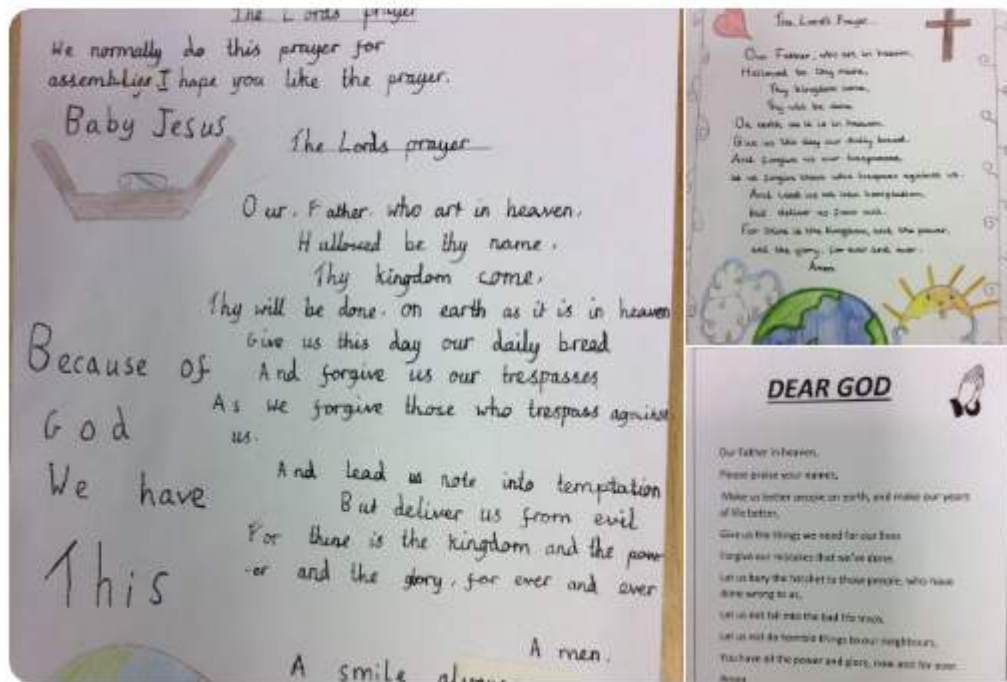 The Lords prayer
We normally do this prayer for
assemblies I hope you like the prayer.
Baby Jesus
The Lords prayer
Our. Father. who art in heaven.
Hallowed be thy name.
Thy kingdom come.
Thy will be done. on earth as it is in heaven
Give us this day our daily bread
And forgive us our trespasses
As we forgive those who trespass against
us.
And lead us note into temptation
But deliver us from evil
For thine is the kingdom and the pow-
-er and the glory, for ever and ever
A men.
Because of
God
We have
This
A smile always
The Lord's Prayer
Our Father, who art in heaven,
Hallowed be thy name,
Thy kingdom come,
Thy will be done
On earth as it is in heaven.
Give us this day our daily bread.
And forgive us our trespasses
as we forgive those who trespass against us.
And lead us not into temptation,
but deliver us from evil.
For thine is the kingdom, and the power,
and the glory, for ever and ever.
Amen
DEAR GOD
Our Father in heaven,
Please praise your names,
Make us better people on earth, and make our years
of life better,
Give us the things we need for our lives
Forgive our mistakes that we've done,
Let us bury the hatchet to those people, who have
done wrong to us,
Let us not fall into the bad life
Let us not do terrible things to our neighbours,
You have all the power and glory, now and for ever
Amen